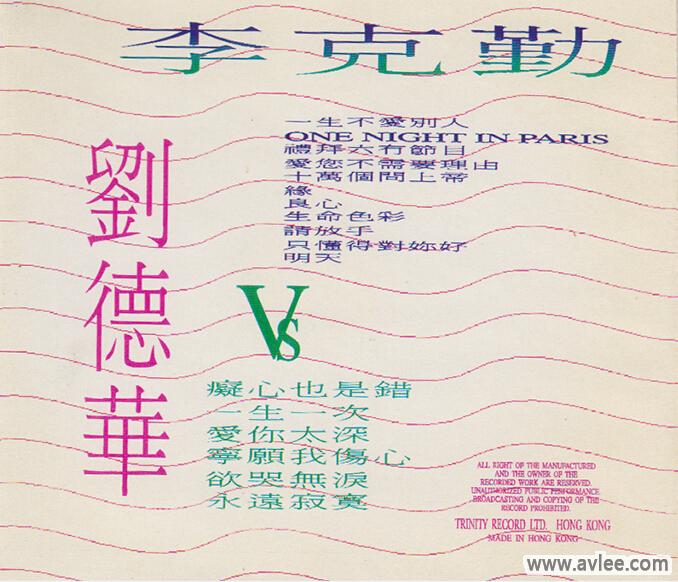 李克勤
一生不愛別人
ONE NIGHT IN PARIS
禮拜六冇節目
愛您不需要理由
十萬個問上帝
緣
良心
生命色彩
請放手
只懂得對妳好
明天
劉德華
Vs
癡心也是錯
一生一次
愛你太深
寧願我傷心
欲哭無淚
永遠寂寞
ALL RIGHT OF THE MANUFACTURED
AND THE OWNER OF THE
RECORDED WORK ARE RESERVED.
UNAUTHORIZED PUBLIC PERFORMANCE
BROADCASTING AND COPYING OF THE
RECORD PROHIBITED.
TRINITY RECORD LTD. HONG KONG
MADE IN HONG KONG
www.avlee.com